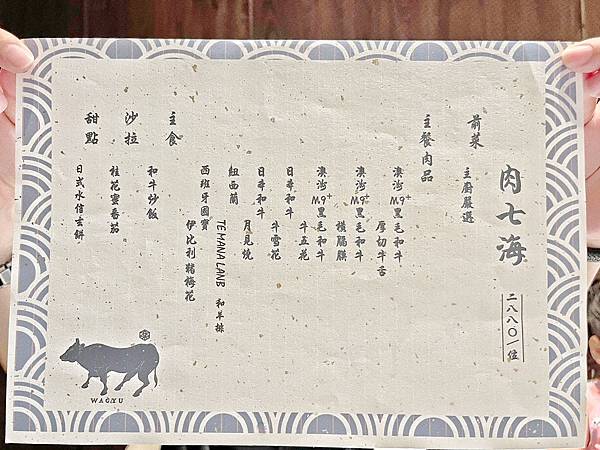 肉七海
二八八〇/位
前菜
主廚嚴選
主餐肉品
澳洲M9+黑毛和牛 厚切牛舌
澳洲M9+黑毛和牛 橫膈膜
澳洲M9+黑毛和牛 牛五花
日本和牛 牛雪花
日本和牛 月見燒
紐西蘭 TE MANA LANB 和羊排
西班牙國寶 伊比利豬梅花
主食
和牛炒飯
沙拉
桂花蜜番茄
甜點
日式水信玄餅
WAGYU